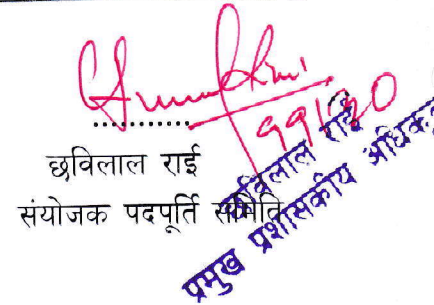 ..................
११।३०
छविलाल राई
संयोजक पदपूर्ति समिति
छविलाल राई
प्रमुख प्रशासकीय अधिकृत